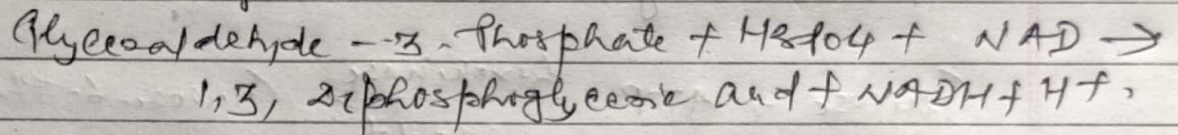 Glyceraldehyde - 3 - Phosphate + H3PO4 + NAD →
1,3, Diphosphoglyceric acid + NADH + H+.